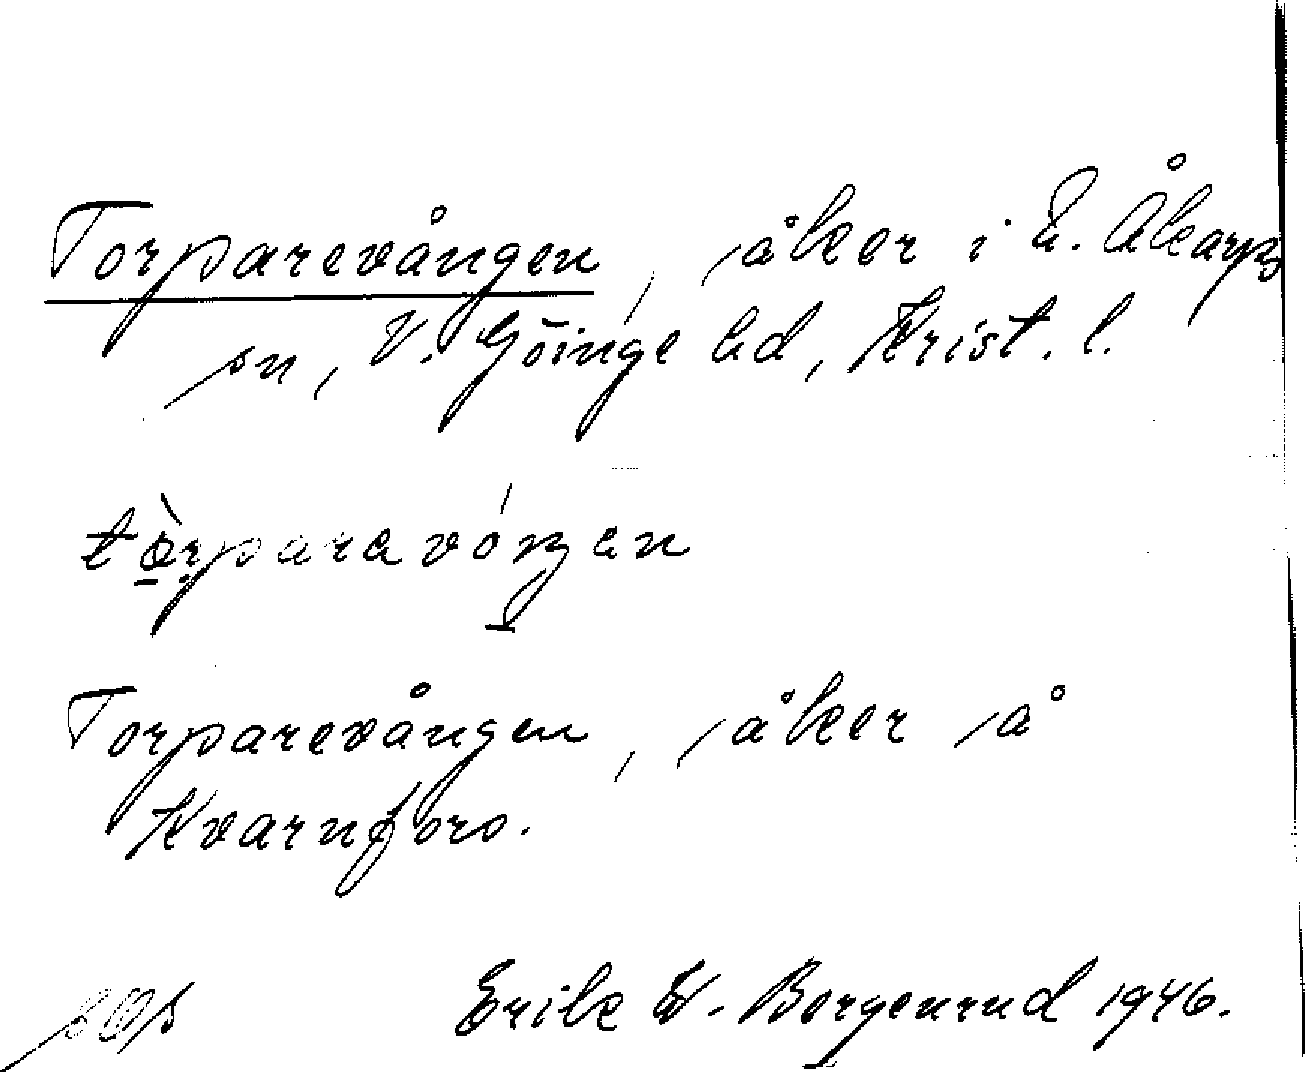 Torparevången, åker i Ö. Åkarps
sn, V. Göinge hd, Krist. l.
Torparevången, åker på
Kvarnforo.
Erik W. Borgenrud 1946.